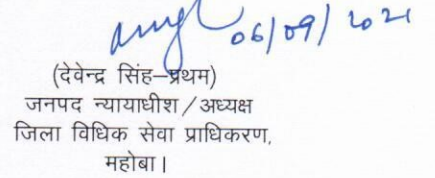 06/09/2021
(देवेन्द्र सिंह–प्रथम)
जनपद न्यायाधीश/अध्यक्ष
जिला विधिक सेवा प्राधिकरण,
महोबा।